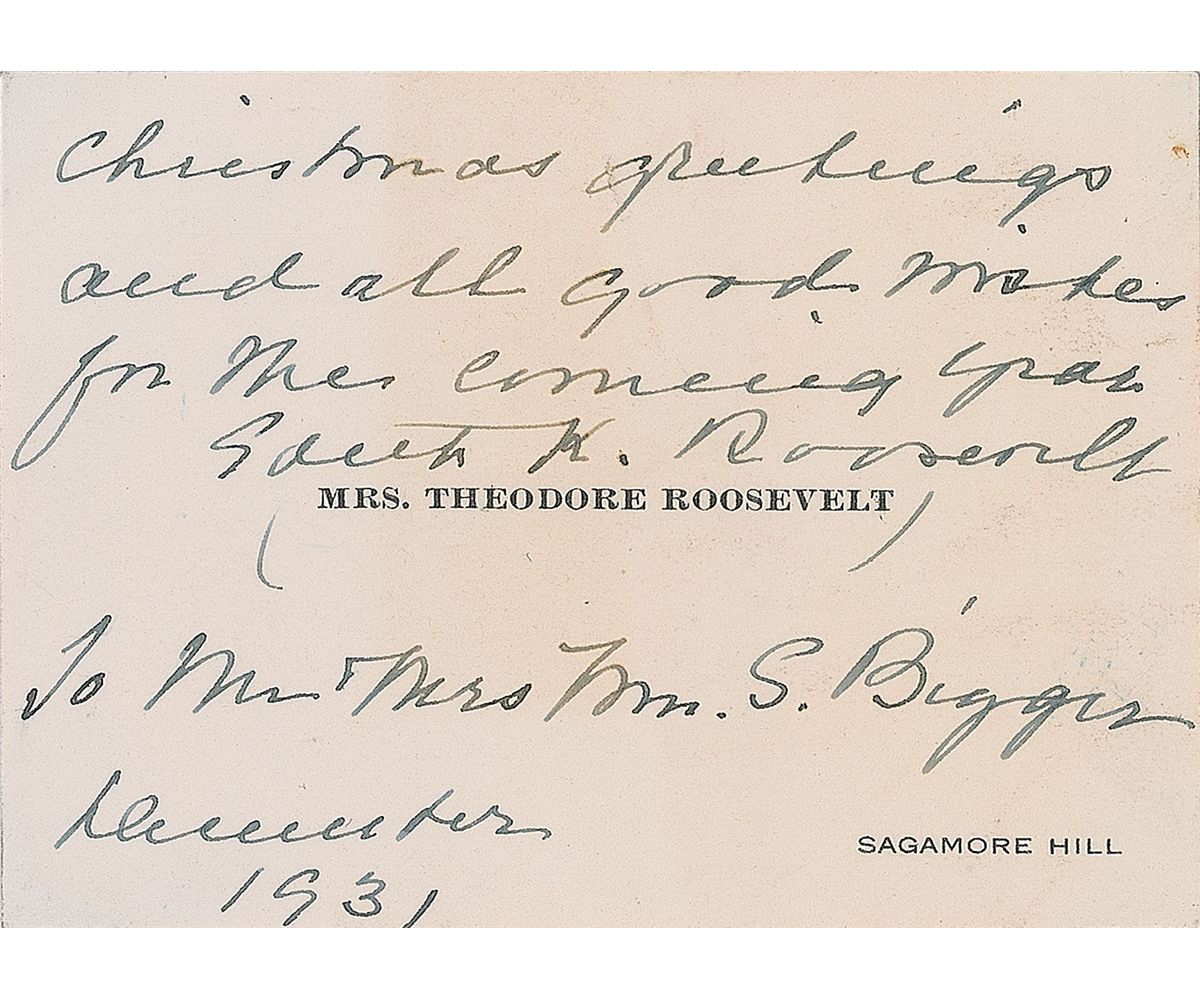 Christmas greetings
and all good wishes
for the coming year
Edith K. Roosevelt
(MRS. THEODORE ROOSEVELT)
To Mr & Mrs Wm. S. Bigger
December
1931
SAGAMORE HILL